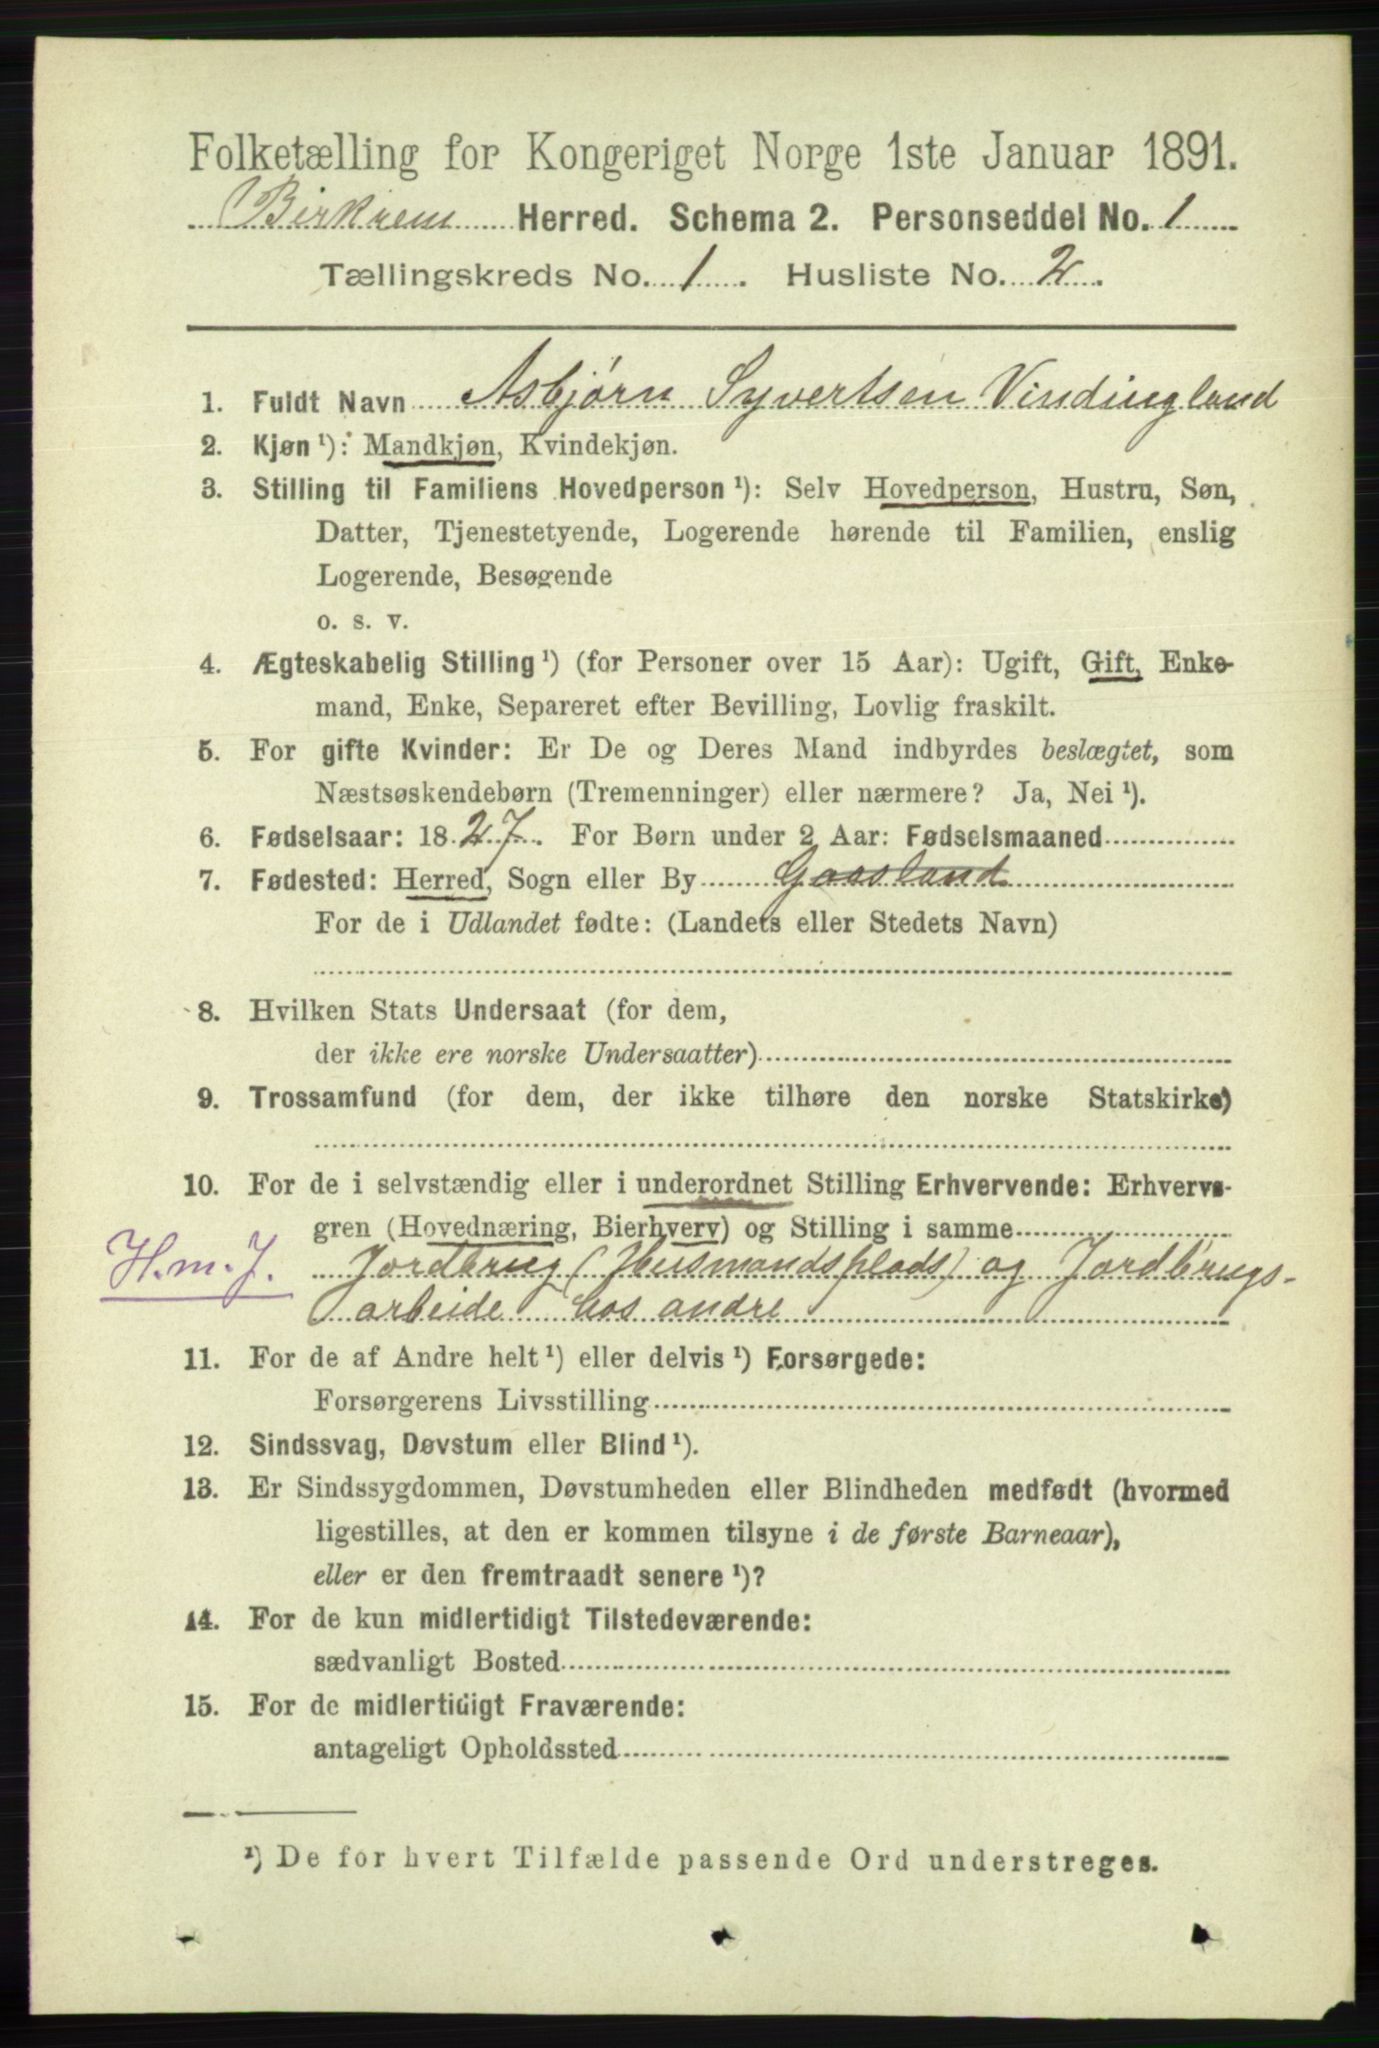 Folketælling for Kongeriget Norge 1ste Januar 1891.
Birkrem Herred. Schema 2. Personseddel No. 1
Tællingskreds No. 1. Husliste No. 2.
1. Fuldt Navn Asbjørn Syvertsen Vindingland
2. Kjøn ¹): Mandkjøn, Kvindekjøn.
3. Stilling til Familiens Hovedperson ¹): Selv Hovedperson, Hustru, Søn,
Datter, Tjenestetyende, Logerende hørende til Familien, enslig
Logerende, Besøgende
o. s. v.
4. Ægteskabelig Stilling ¹) (for Personer over 15 Aar): Ugift, Gift, Enke-
mand, Enke, Separeret efter Bevilling, Lovlig fraskilt.
5. For gifte Kvinder: Er De og Deres Mand indbyrdes beslægtet, som
Næstsøskendebørn (Tremenninger) eller nærmere? Ja, Nei ¹).
6. Fødselsaar: 1827. For Børn under 2 Aar: Fødselsmaaned
7. Fødested: Herred, Sogn eller By Gaasland
For de i Udlandet fødte: (Landets eller Stedets Navn)
8. Hvilken Stats Undersaat (for dem,
der ikke ere norske Undersaatter)
9. Trossamfund (for dem, der ikke tilhøre den norske Statskirke)
10. For de i selvstændig eller i underordnet Stilling Erhvervende: Erhvervs-
gren (Hovednæring, Bierhverv) og Stilling i samme
H.m.J. Jordbrug (Husmandsplads) og Jordbrugs-
arbeide hos andre
11. For de af Andre helt ¹) eller delvis ¹) Forsørgede:
Forsørgerens Livsstilling
12. Sindssvag, Døvstum eller Blind ¹).
13. Er Sindssygdommen, Døvstumheden eller Blindheden medfødt (hvormed
ligestilles, at den er kommen tilsyne i de første Barneaar),
eller er den fremtraadt senere ¹)?
14. For de kun midlertidigt Tilstedeværende:
sædvanligt Bosted
15. For de midlertidigt Fraværende:
antageligt Opholdssted
¹) De for hvert Tilfælde passende Ord understreges.